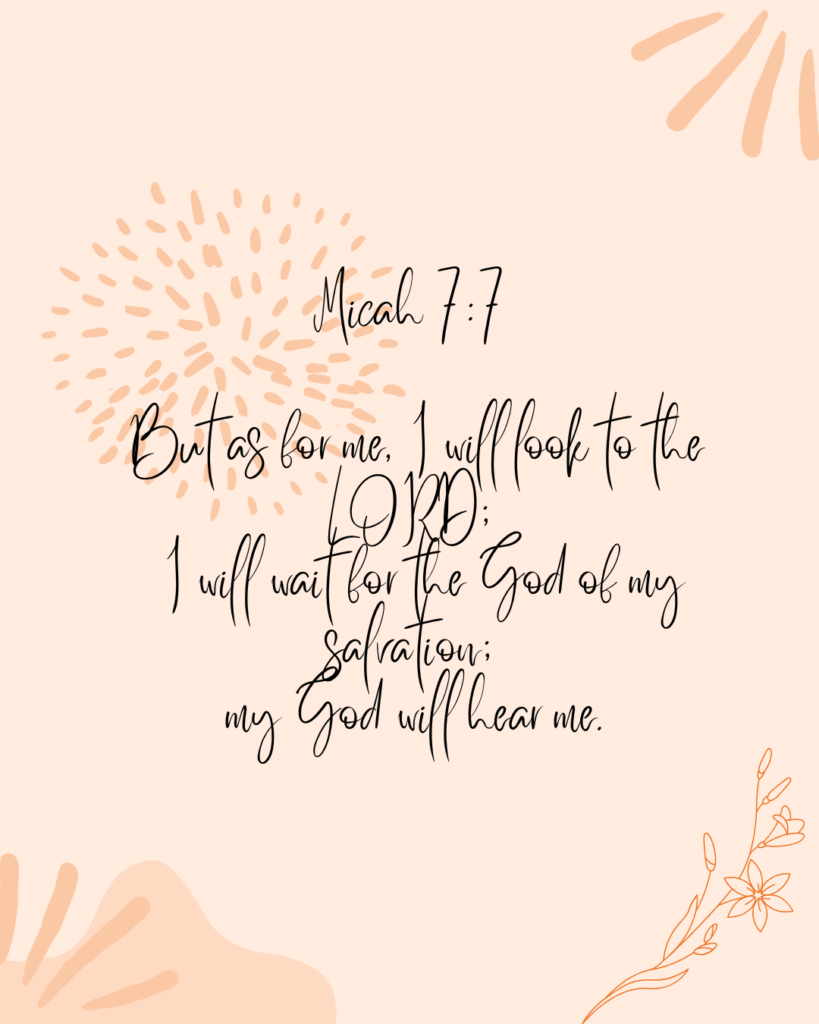 Micah 7:7
But as for me, I will look to the
LORD;
I will wait for the God of my
salvation;
my God will hear me.